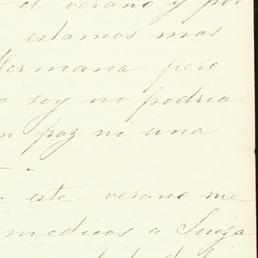 el verano y por
estamos mas
Hermana pero
soy no podria
paz ni una
este verano me
medicos a Suiza